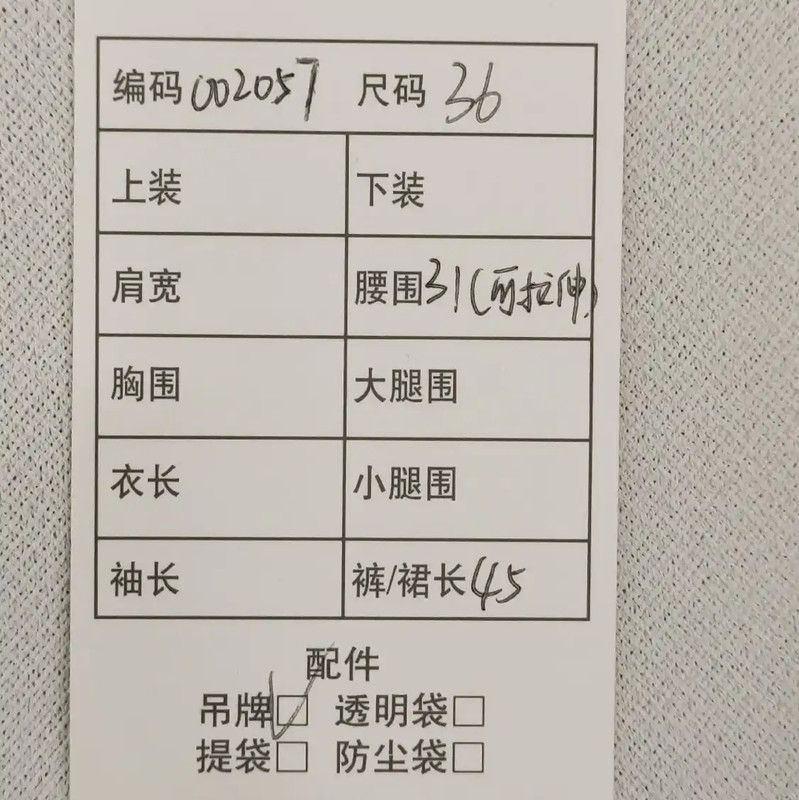 编码 002057 尺码 36
上装 下装
肩宽 腰围 31(可拉伸)
胸围 大腿围
衣长 小腿围
袖长 裤/裙长 45
配件
吊牌☑ 透明袋□
提袋□ 防尘袋□